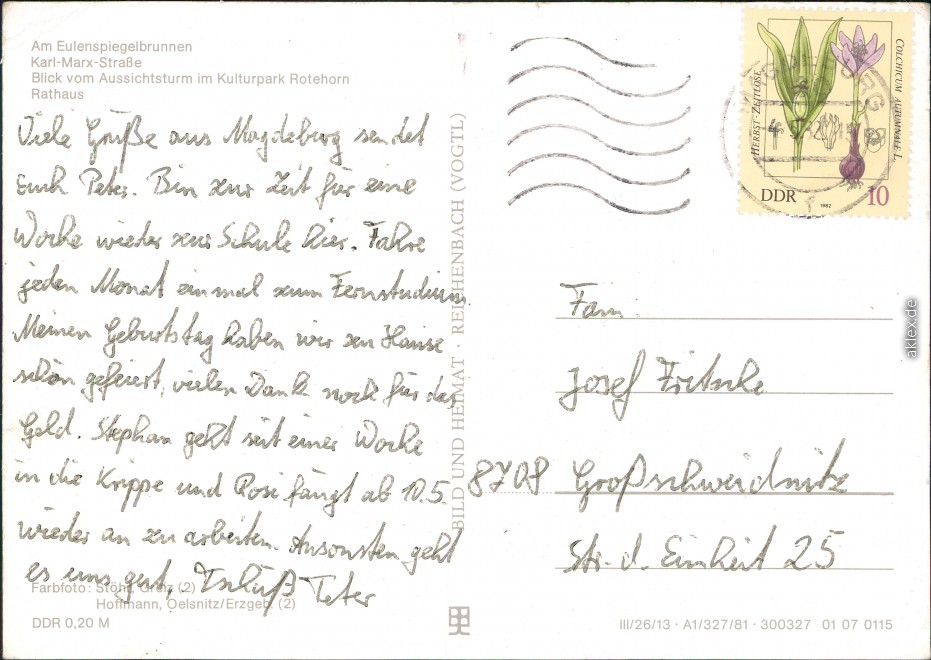 Am Eulenspiegelbrunnen
Karl-Marx-Straße
Blick vom Aussichtsturm im Kulturpark Rotehorn
Rathaus
Viele Grüße aus Magdeburg sendet
Euch Peter. Bin zur Zeit für eine
Woche wieder zur Schule hier. Fahre
jeden Monat einmal zum Fernstudium.
Meinen Geburtstag haben wir zu Hause
schön gefeiert, vielen Dank noch für das
Geld. Stephan geht seit einer Woche
in die Krippe und Rosi fängt ab 10.5.
wieder an zu arbeiten. Ansonsten geht
es uns gut, Tschüß Peter
Farbfoto: Stöhr, Greiz (2)
Hoffmann, Oelsnitz/Erzgeb. (2)
DDR 0,20 M
BILD UND HEIMAT · REICHENBACH (VOGTL)
HERBST-ZEITLOSE
COLCHICUM AUTUMNALE L.
DDR
1982
10
Fam.
Josef Fritsche
8708 Großschweidnitz
Str. d. Einheit 25
III/26/13 · A1/327/81 · 300327 01 07 0115
aklex.de